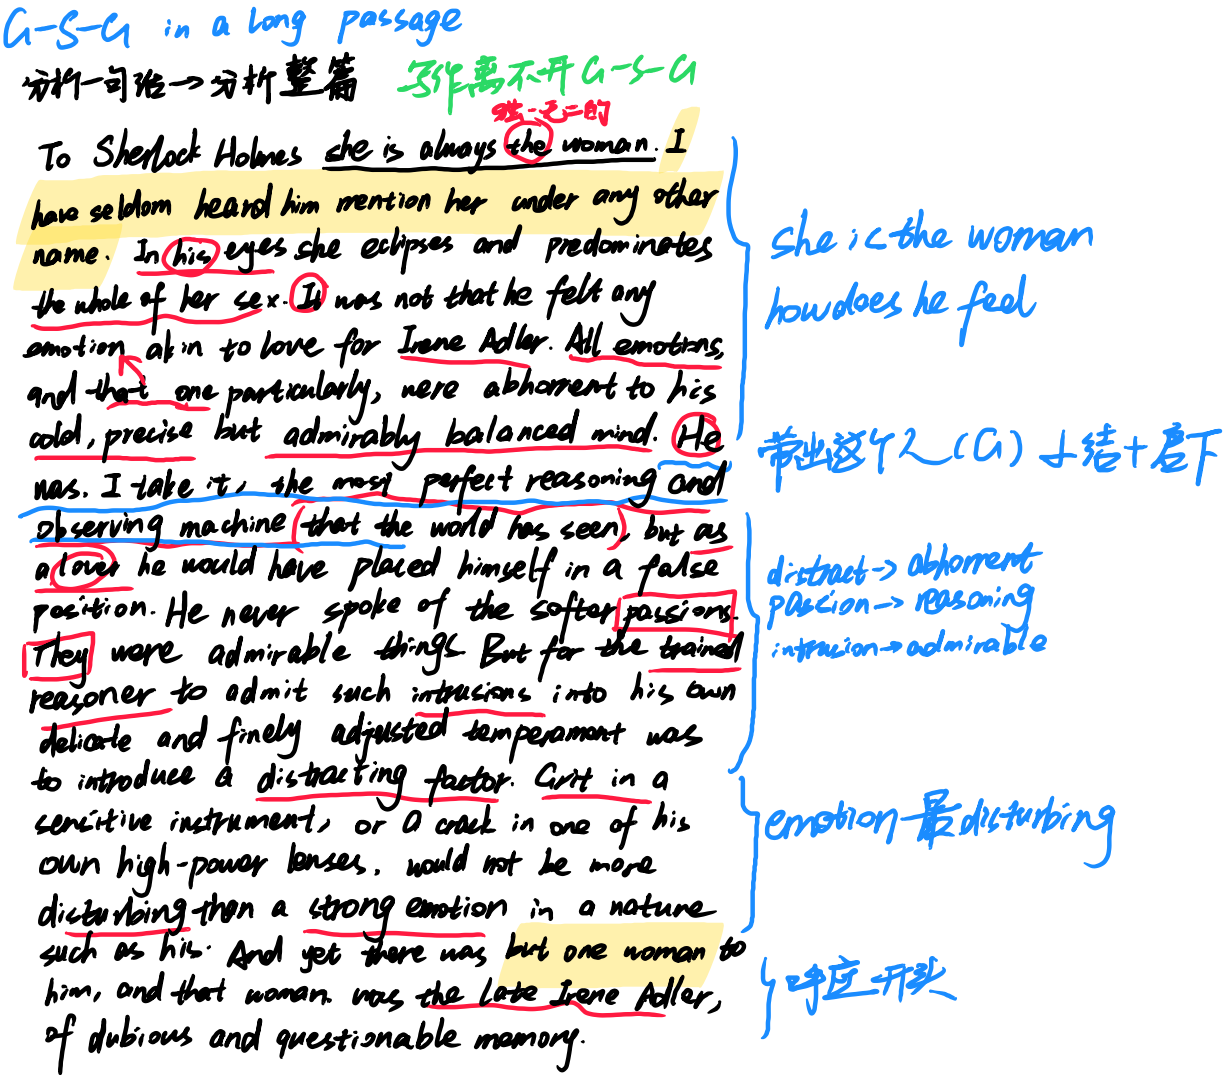 G-S-G in a long passage
分析一句话→分析整篇 写作离不开G-S-G
独一无二的
To Sherlock Holmes she is always the woman. I
have seldom heard him mention her under any other
name. In his eyes she eclipses and predominates
the whole of her sex. It was not that he felt any
emotion akin to love for Irene Adler. All emotions,
and that one particularly, were abhorrent to his
cold, precise but admirably balanced mind. He
was. I take it, the most perfect reasoning and
observing machine (that the world has seen), but as
a lover he would have placed himself in a false
position. He never spoke of the softer passions.
They were admirable things But for the trained
reasoner to admit such intrusions into his own
delicate and finely adjusted temperament was
to introduce a distracting factor. Grit in a
sensitive instrument, or a crack in one of his
own high-power lenses, would not be more
disturbing than a strong emotion in a nature
such as his. And yet there was but one woman to
him, and that woman was the late Irene Adler,
of dubious and questionable memory.
she is the woman
how does he feel
带出这个人(G) 上结+启下
distract→abhorrent
passion→reasoning
intrusion→admirable
emotion最disturbing
呼应开头